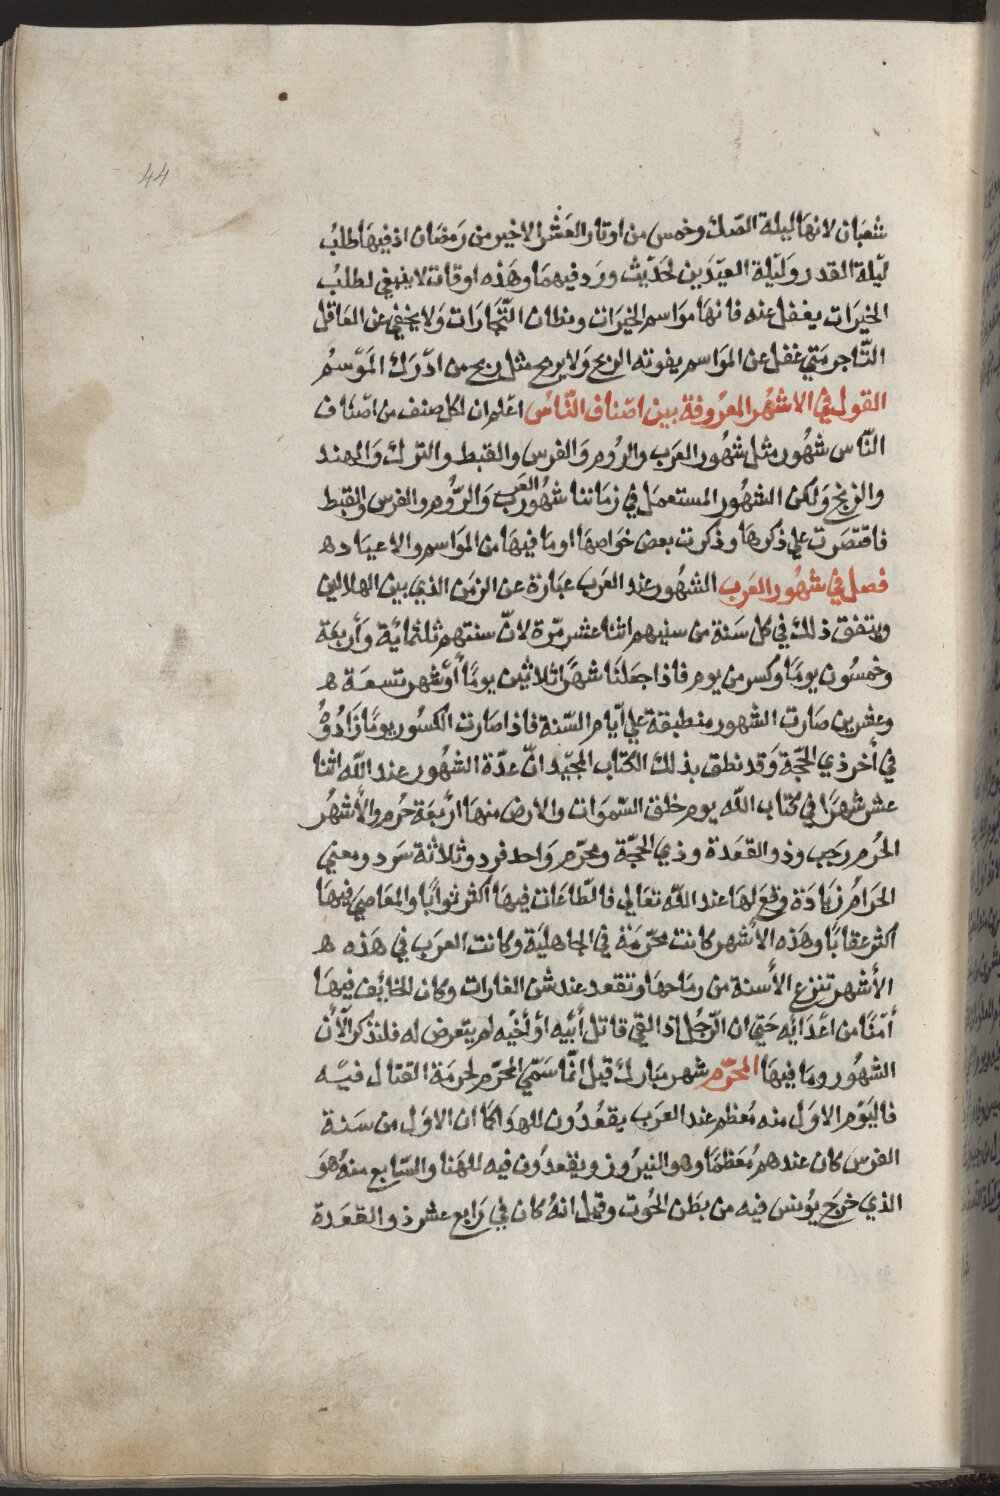 44
شعبان لانها ليلة الصك وخمس من اوتار العشر الاخير من رمضان اذ فيها طلب
ليلة القدر وليلة العيدين لحديث ورد فيهما وهذه اوقات لا ينبغي لطلب
الخيرات يغفل عنه فانها مواسم الخيرات ومظان التجارات ولا يخفي عن العاقل
التاجر متي غفل عن المواسم يفوته الربح ولا يربح مثل ربح من ادرك الموسم
القول في الاشهر المعروفة بين اصناف الناس اعلم ان لكل صنف من اصناف
الناس شهور مثل شهور العرب والروم والفرس والقبط والترك والهند
والزنج ولكن الشهور المستعمل في زماننا شهور العرب والروم والفرس والقبط
فاقتصرت علي ذكرها وذكرت بعض خواصها او ما فيها من المواسم والاعياد ه
فصل في شهور العرب الشهور عند العرب عبارة عن الزمن الذي بين الهلالين
ويتفق ذلك في كل سنة من سنيهم اثنا عشر مرة لان سنتهم ثلثمائة وأربعة
وخمسون يوما وكسر من يوم فاذا جعلنا شهرا ثلاثين يوما أو شهر تسعة ه
وعشرين صارت الشهور منطبقة علي ايام السنة فاذا صارت الكسور يوما زادوه
في أخر ذي الحجة وقد نطق بذلك الكتاب المجيد ان عدة الشهور عند الله اثنا
عشر شهرا في كتاب الله يوم خلق السموات والارض منها اربعة حرم والأشهر
الحرم رجب وذو القعدة وذي الحجة ومحرم واحد فرد وثلاثة سرد ومعني
الحرام زيادة وقع لها عند الله تعالي فالطاعات فيها اكثر ثوابا والمعاصي فيها
أكثر عقابا وهذه الأشهر كانت محرمة في الجاهلية وكانت العرب في هذه ه
الأشهر تنزع الأسنة من رماحها وتقعد عند شن الغارات وكان الخايف فيها
أمنا من اعدايه حتي ان الرجل اذا لقي قاتل أبيه أو أخيه لم يتعرض له فلنذكر الآن
الشهور وما فيها المحرم شهر مبارك قيل انما سمي المحرم لحرمة القتال فيه
فاليوم الاول منه معظم عند العرب يقعدون للهدا كما ان الاول من سنة
الفرس كان عندهم معظما وهو النيروز ويقعدون فيه للهنا والسابع منه هو
الذي خرج يونس فيه من بطن الحوت وقيل انه كان في رابع عشر ذو القعدة